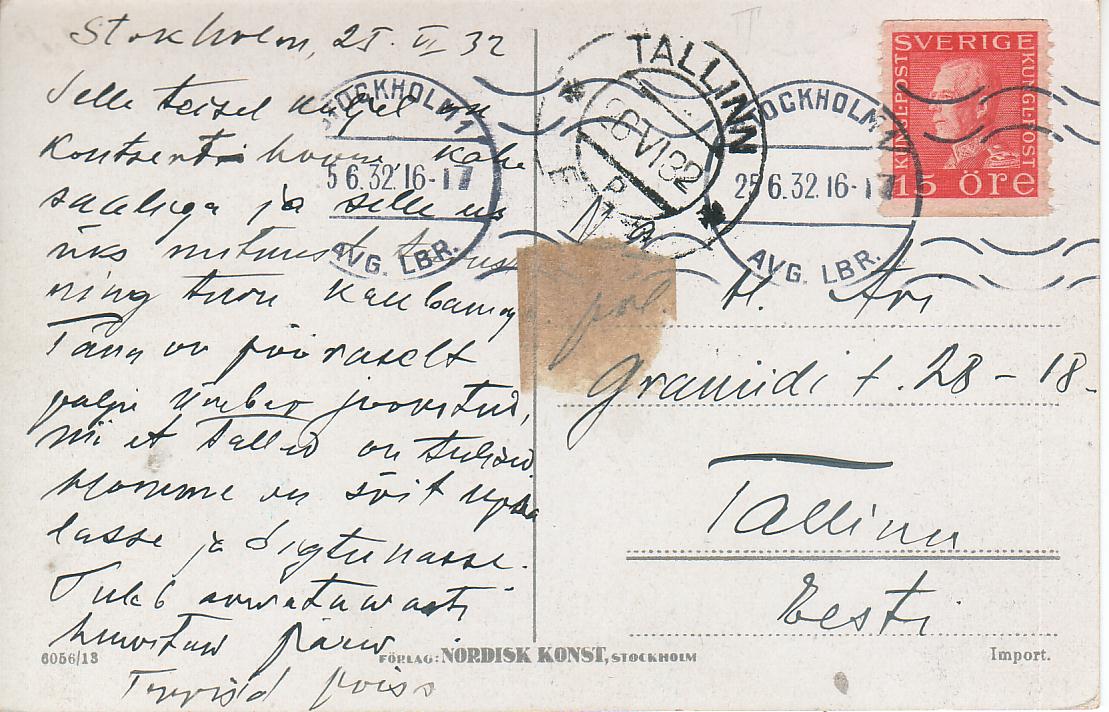 Stokholm, 25. VI 32
Selle teisel küljel on
Kontserthoone kahe
saaliga ja selle ees
üks mitmest
ning turu
Täna on pööraselt
palju ümber joostud,
nii et tallad on tulised
Homme on sõit Upsa
lasse ja Sigtunasse.
Tuleb arvatavasti
huvitav päev
Tervisid poiss
STOCKHOLM 1
5 6.32.16-17
AVG. LBR.
TALLINN
26 VI 32
EESTI
STOCKHOLM 1
25 6.32.16-17
AVG. LBR.
SVERIGE
KUNGL-POST
KUNGL-POST
15 ÖRE
H. Ari
Graniidi t. 28-18-
Tallinn
Eesti
6056/13
FÖRLAG: NORDISK KONST, STOCKHOLM
Import.